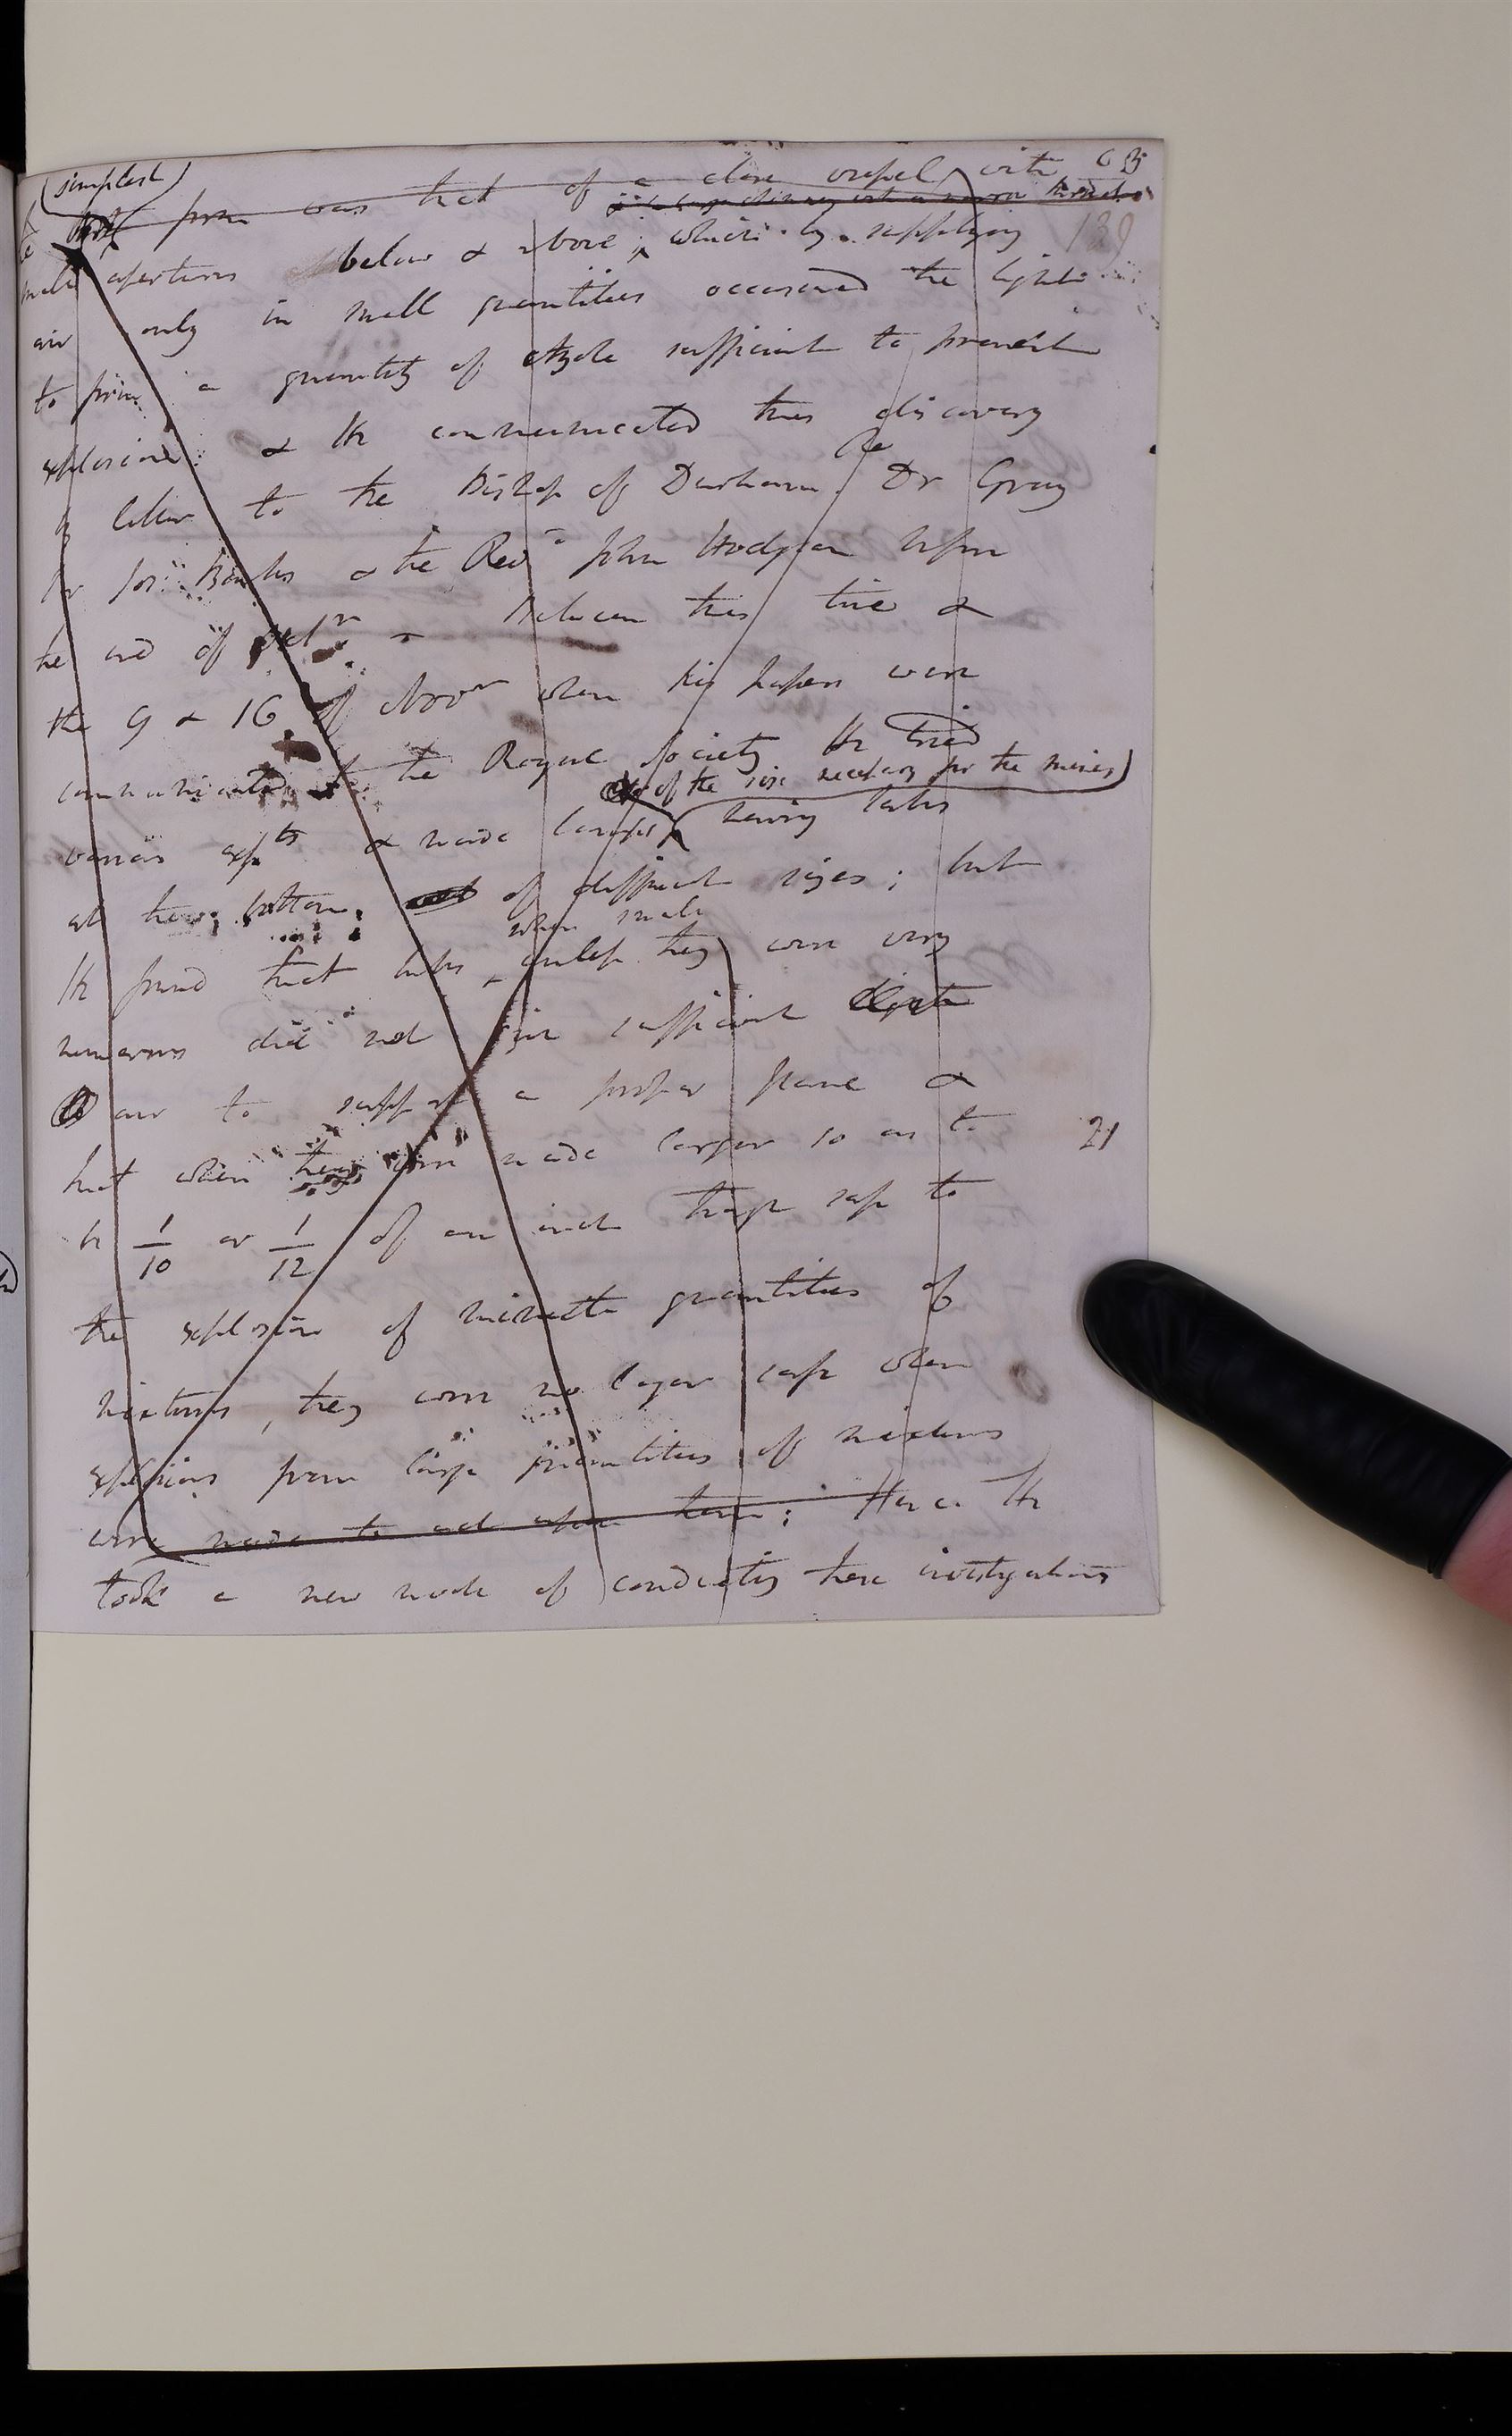 (simplest)
63
The first form was that of a close vessel with
in a large chimney with a narrow
139
small apertures below & above; which by supplying
air only in small quantities occasioned the light
to form a quantity of Azote sufficient to prevent
explosion: & He communicated this discovery
by letter to the Bishop of Durham Dr Gray
Sir Jos: Banks & the Revd John Hodgson before
the end of Octr – Between this time &
the 9 & 16 of Novr when his papers were
communicated to the Royal Society He tried
of the size necessary for the mines)
various expts & made lamps having tubes
at their bottom of different sizes; but
when small
He found that tubes unless they were very
numerous did not give sufficient
air to support a proper flame &
that when they were made larger so as to
21
be 1/10 or 1/12 of an inch though safe to
the explosion of minute quantities of
mixtures, they were no longer safe when
explosions from large quantities of mixtures
were made to act upon them; Hence He
took a new mode of conducting these investigations